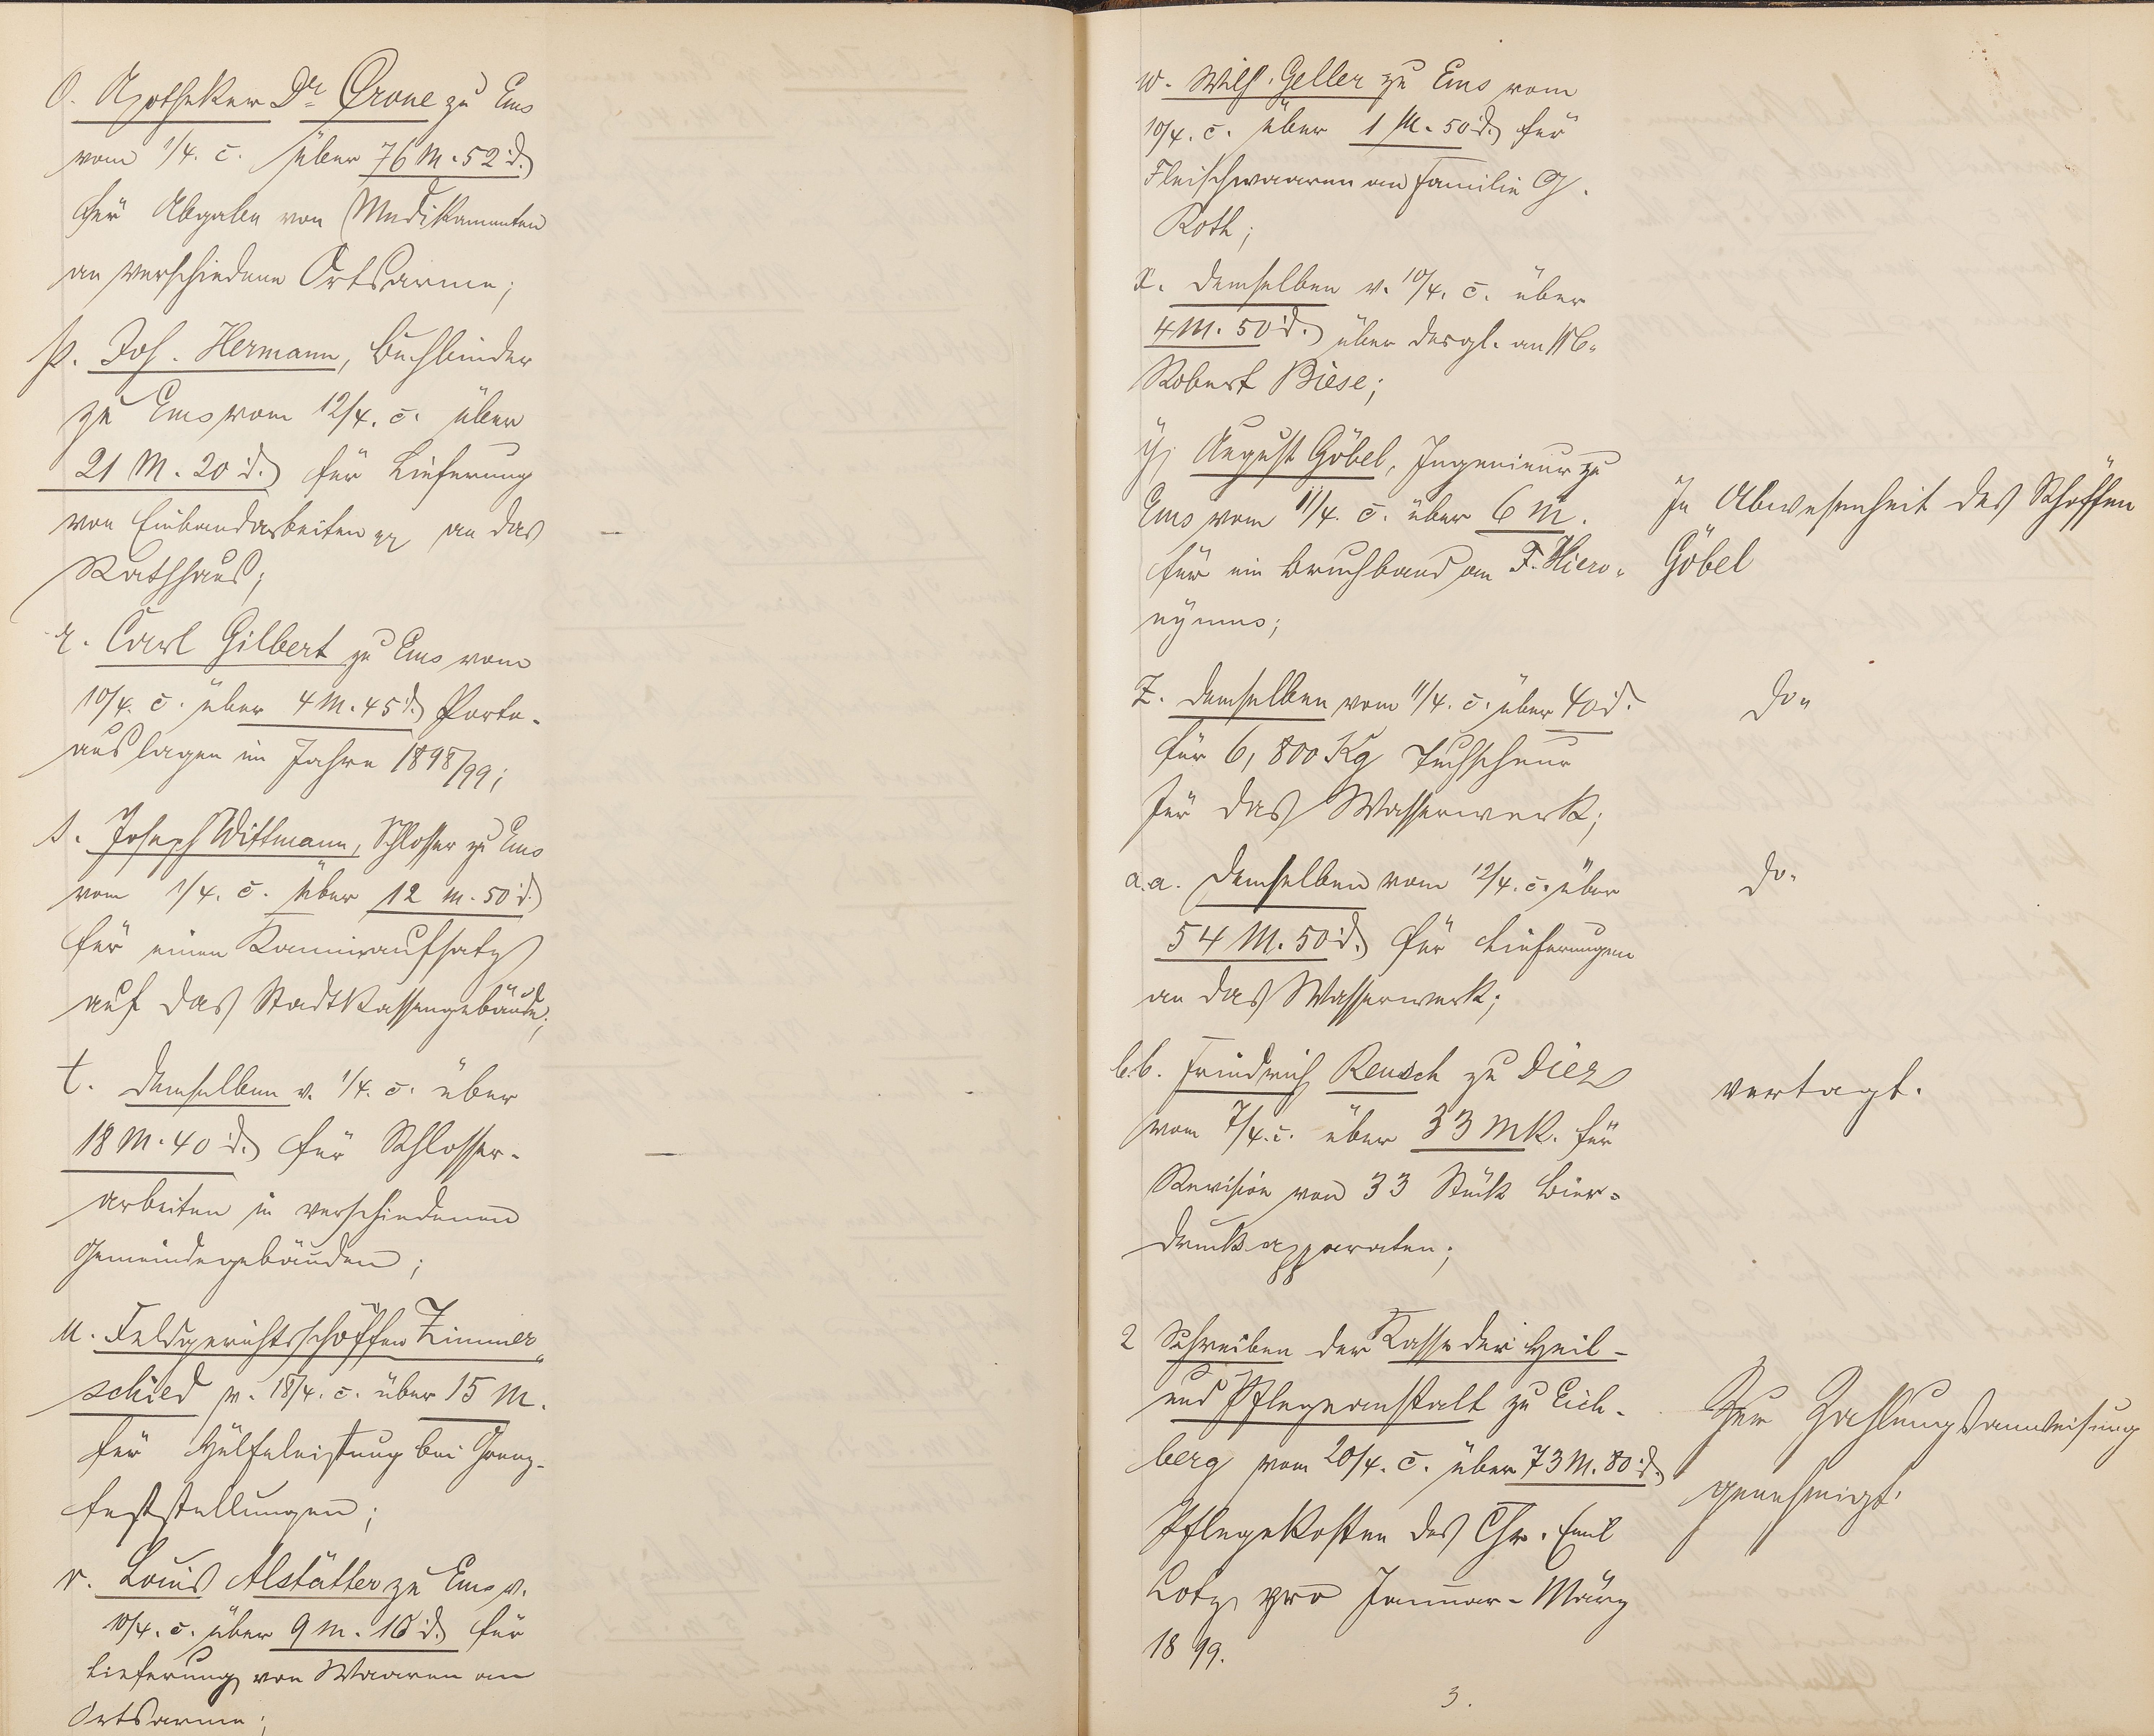 o. Apotheker Dr Crone zu Ems
vom 1/4. c. über 76 M. 52 d.
für Abgabe von Medikamenten
an verschiedene Ortsarme;
p. Joh. Hermann, Buchbinder
zu Ems vom 12/4. c. über
21 M. 20 d. für Lieferung
von Einbandarbeiten an das
Rathhaus;
r. Carl Gilbert zu Ems vom
10/4. c. über 4 M. 45 d. Porto-
auslagen im Jahre 1898/99;
s. Joseph Wittmann, Schlosser zu Ems
vom 1/4. c. über 12 M. 50 d.
für einen Kaminaufsatz
auf das Stadtkassengebäude;
t. demselben v. 1/4. c. über
18 M. 40 d. für Schlosser-
arbeiten in verschiedenen
Gemeindegebäuden;
u. Feldgerichtsschöffen Zimmer-
schied v. 18/4. c. über 15 M.
für Hülfeleistung bei Grenz-
feststellungen;
v. Louis Alstätter zu Ems v.
10/4. c. über 9 M. 10 d. für
Lieferung von Waaren an
Ortsarme;
w. Wilh. Geller zu Ems vom
10/4. c. über 1 M. 50 d. für
Fleischwaaren an Familie G.
Roth;
x. demselben v. 10/4. c. über
4 M. 50 d. über desgl. an
Robert Biese;
y. August Göbel, Ingenieur zu
Ems vom 11/4. c. über 6 M.
für ein Bruchband an F. Hiero-
nymus;
In Abwesenheit des Schöffen
Göbel
z. demselben vom 11/4. c. über 40 d.
für 6,800 Kg
für das Wasserwerk;
do.
a.a. demselben vom 12/4. c. über
54 M. 50 d. für Lieferungen
an das Wasserwerk;
do.
b.b. Friedrich Reusch zu Diez
vom 7/4. c. über 33 Mk. für
Revision von 33 Stück Bier-
druckapparaten;
vertagt.
2 Schreiben der Kasse der Heil-
und Pflegeanstalt zu Eich-
berg vom 20/4. c. über 73 M. 80 d.
Pflegekosten des Chr. Emil
Lotz pro Januar-März
1899.
Zur Zahlungsanweisung
genehmigt.
3.